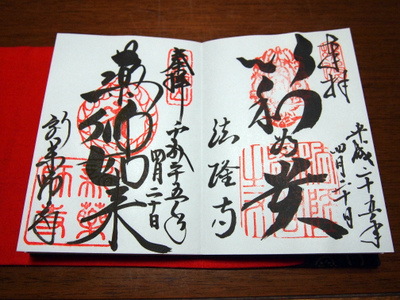 奉拝
以和為貴
平成二十五年
四月二十日
法隆寺
奉拝
平成二十五年
四月二十日
薬師如来
新薬師寺